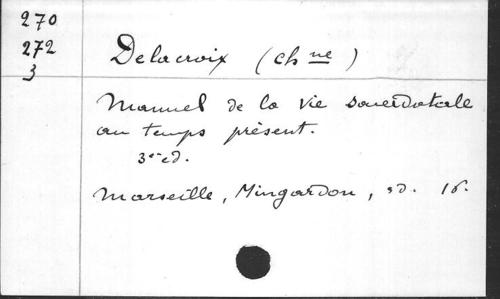 270
272
3
Delacroix (chne)
Manuel de la vie sacerdotale
au temps présent.
3e éd.
Marseille, Mingardon, sd. 16.